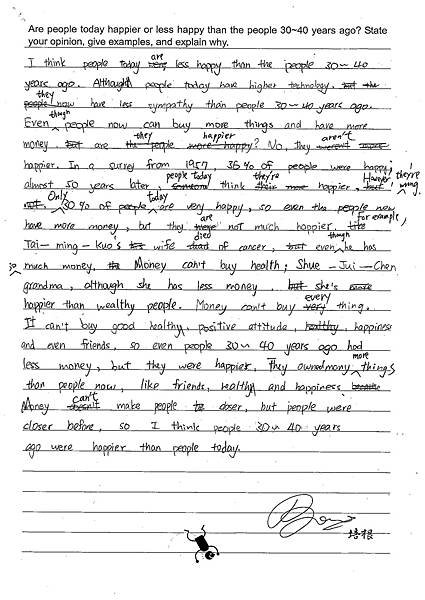 Are people today happier or less happy than the people 30~40 years ago? State
your opinion, give examples, and explain why.
I think people today are less happy than the people 30~40
years ago. Although people today have higher technology, but the
people they now have less sympathy than people 30~40 years ago.
Even though people now can buy more things and have more
money but are they people more happy happier? No, they weren't aren't more
happier. In a surrey from 1957 36% of people were happy;
almost 50 years later, people today think they're more happier, However, they're
wrong.
Only 30% of people today are very happy, so even the people now
have more money, but they are not much happier. for example,
Tai-ming-kuo's wife died of cancer, but even though he has
so much money, Money can't buy health; Shue-Jui-Chen
grandma, although she has less money, but she's more
happier than wealthy people. Money can't buy every very thing.
It can't buy good healthy, positive attitude, healthy, happiness
and even friends, so even people 30~40 years ago had
less money, but they were happier, They owned mony more things
than people now, like friends, healthy and happiness
Money can't doesn't make people to closer, but people were
closer before, so I think people 30~40 years
ago were happier than people today.
培根